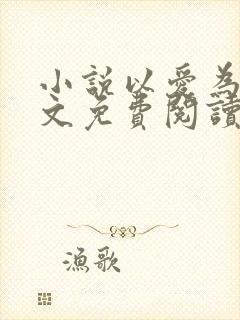 小說以愛為
文免費閱讀
漁歌